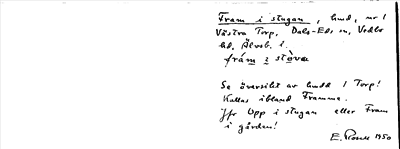 Fram i stugan, lmd, nr 1
Västra Torp, Dals-Eds sn, Vedbo
hd, Älvsb. l.
frám i stòva
Se översikt av lmdd 1 Torp!
Kallas ibland Framme.
Jfr Upp i stugan eller Fram
i gården!
E. 1950